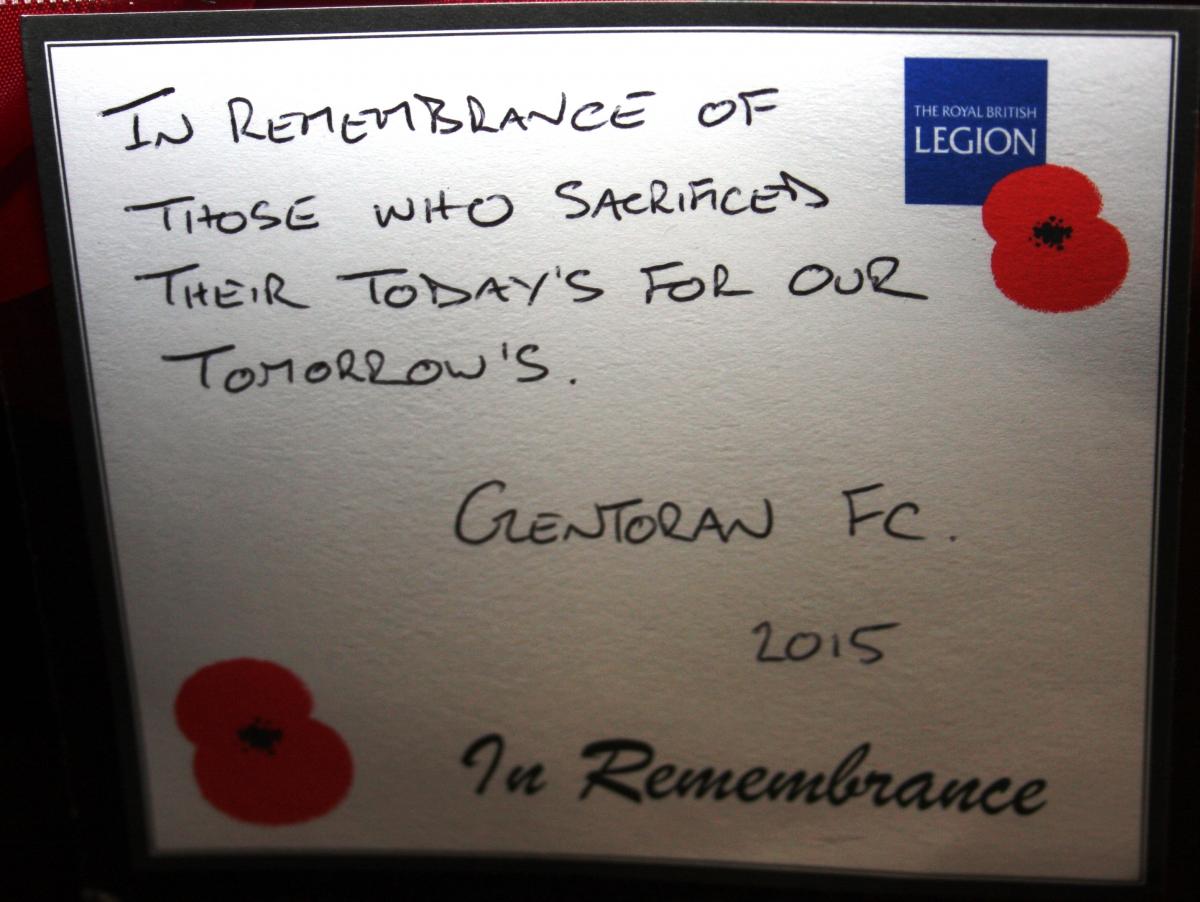 IN REMEMBRANCE OF
THOSE WHO SACRIFICED
THEIR TODAY'S FOR OUR
TOMORROW'S.
THE ROYAL BRITISH
LEGION
GLENTORAN FC.
2015
In Remembrance